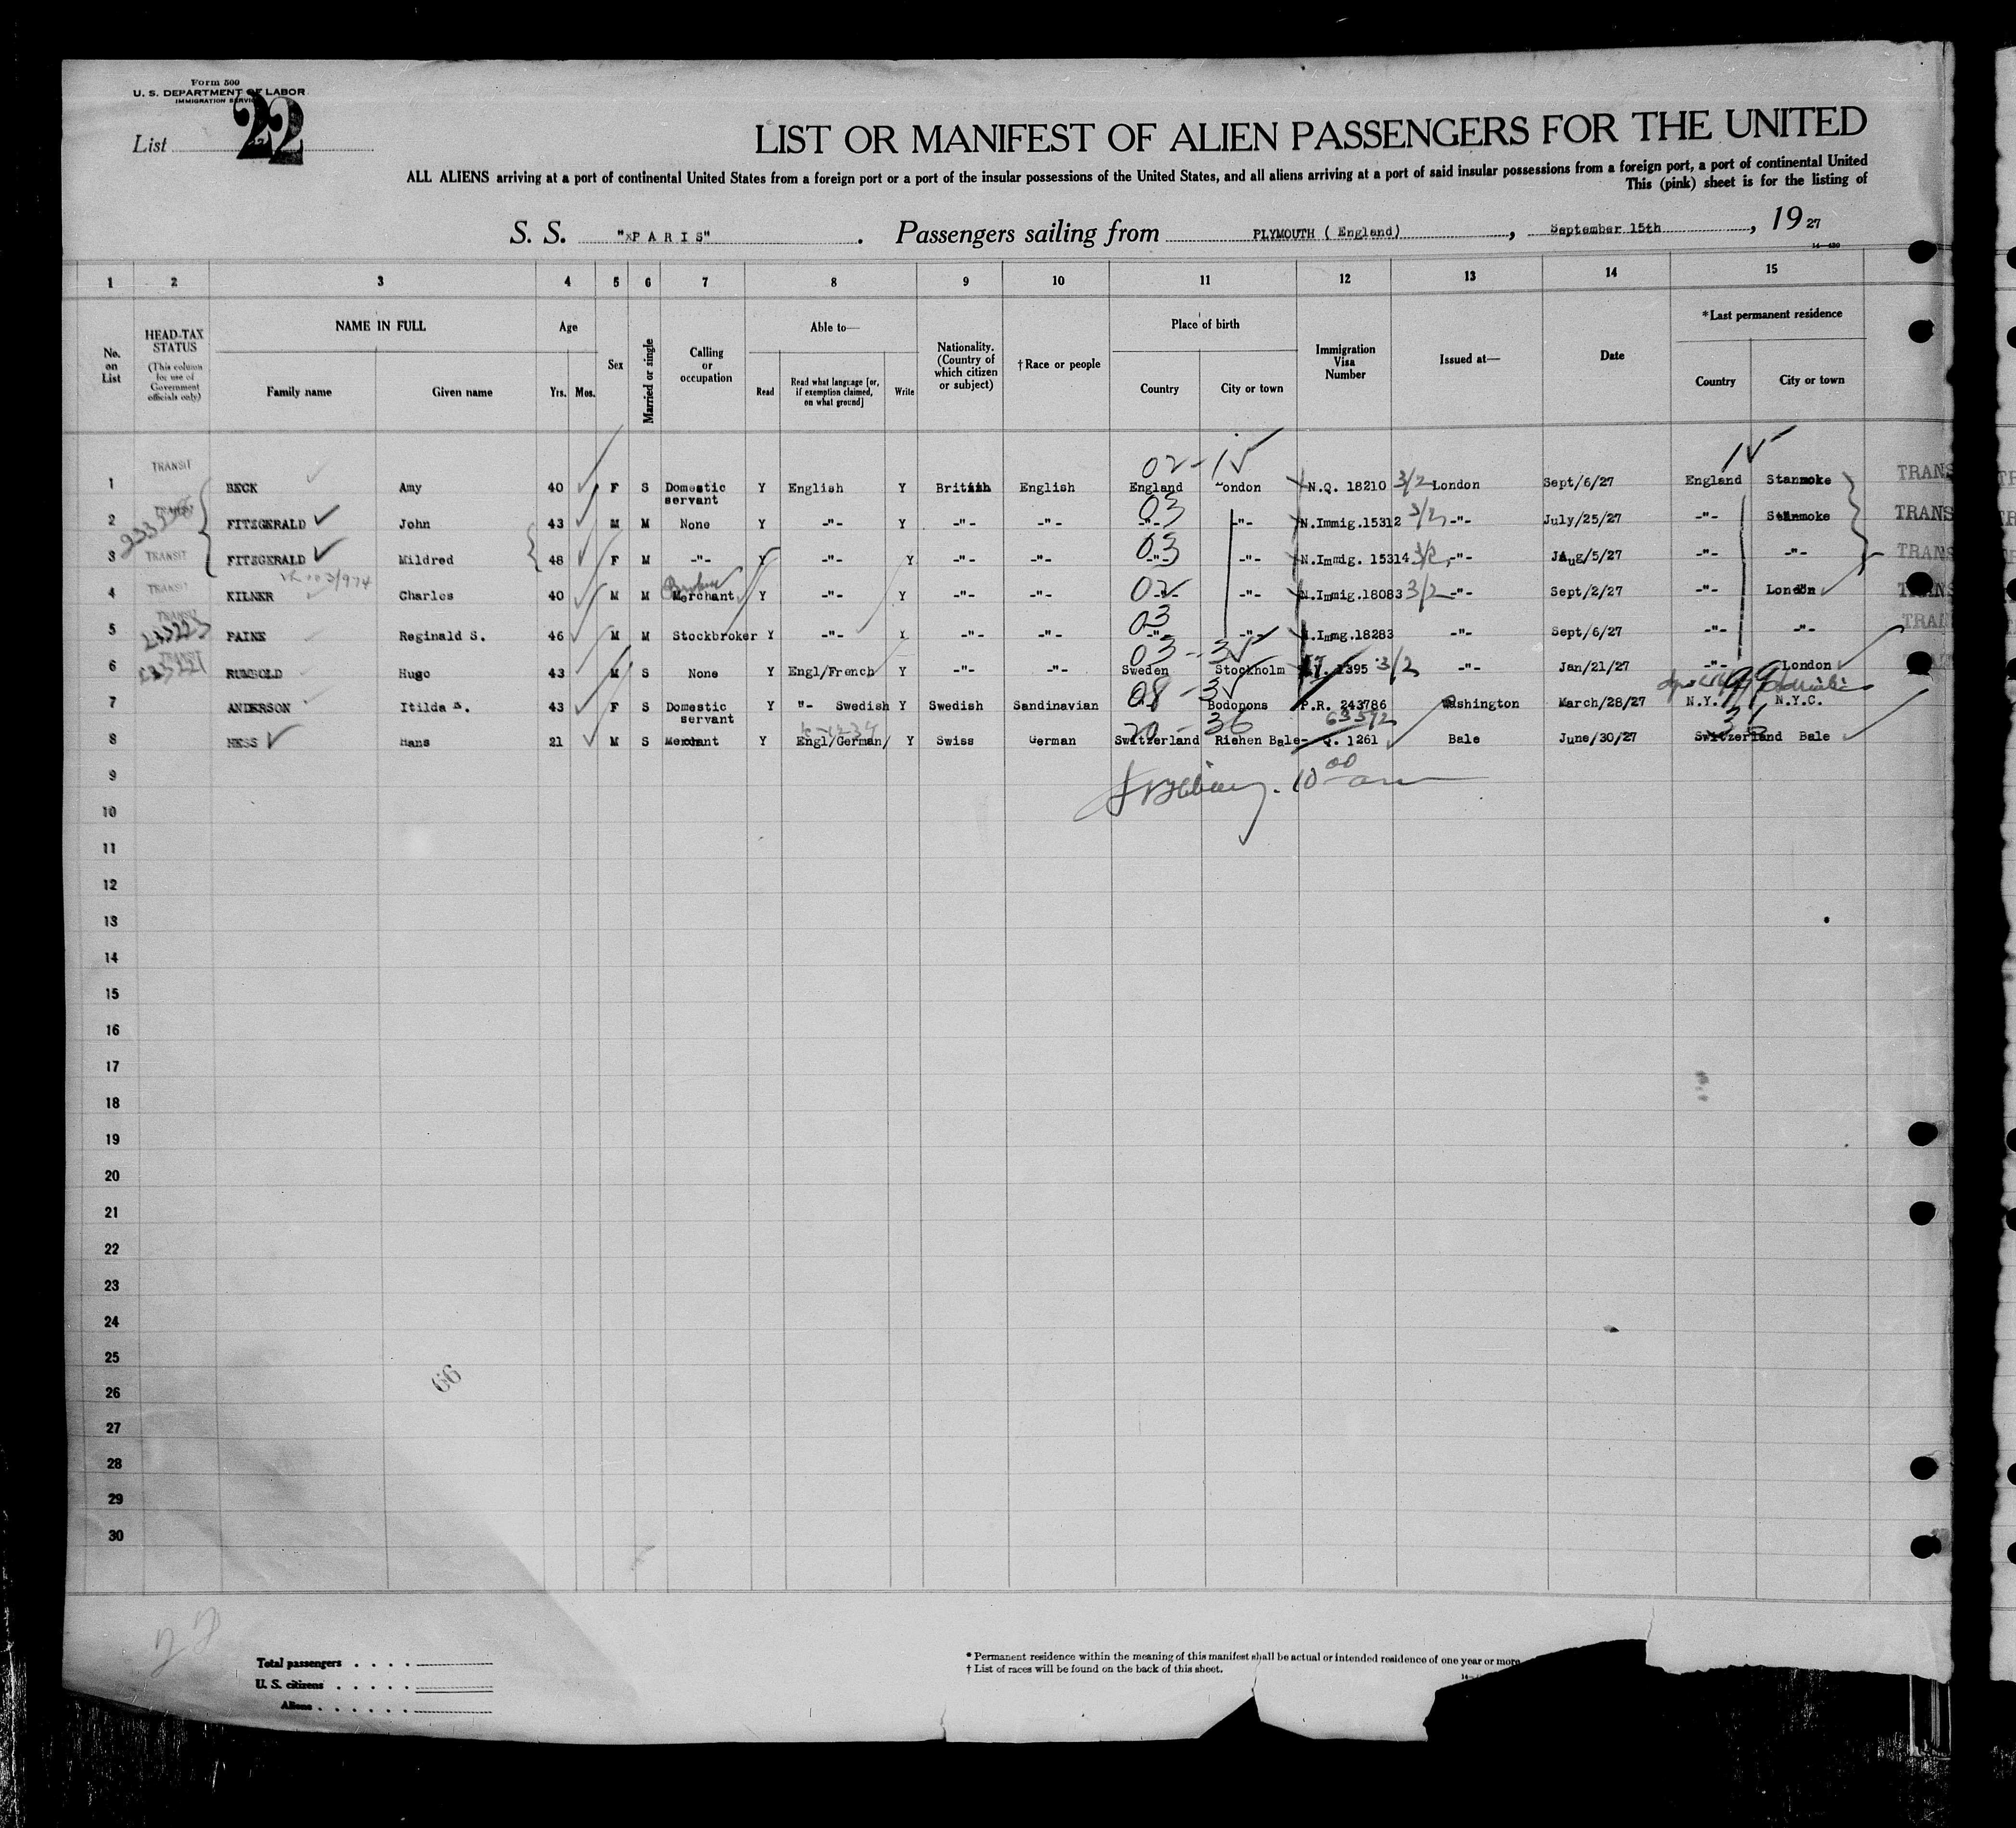 Form 500
U. S. DEPARTMENT OF LABOR
IMMIGRATION SERVICE
List 22
LIST OR MANIFEST OF ALIEN PASSENGERS FOR THE UNITED
ALL ALIENS arriving at a port of continental United States from a foreign port or a port of the insular possessions of the United States, and all aliens arriving at a port of said insular possessions from a foreign port, a port of continental United
This (pink) sheet is for the listing of
S. S. "PARIS". Passengers sailing from PLYMOUTH ( England), September 15th, 1927
1 2 3 4 5 6 7 8 9 10 11 12 13 14 15
No. on List
HEAD-TAX STATUS (This column for use of Government officials only)
NAME IN FULL
Family name Given name
Age
Yrs. Mos.
Sex
Married or single
Calling or occupation
Able to—
Read Read what language [or, if exemption claimed, on what ground] Write
Nationality. (Country of which citizen or subject)
† Race or people
Place of birth
Country City or town
Immigration Visa Number
Issued at—
Date
* Last permanent residence
Country City or town
02-1
1 TRANSIT BECK Amy 40 F S Domestic servant Y English Y British English England London N.Q. 18210 3/2 London Sept/6/27 England Stanmoke TRANS
2 TRANSIT FITZGERALD John 43 M M None Y -"- Y -"- -"- 03 -"- -"- N.Immig.15312 3/2 -"- July/25/27 -"- Stanmoke TRANS
3 TRANSIT FITZGERALD Mildred 48 F M -"- Y -"- Y -"- -"- 03 -"- -"- N.Immig. 15314 3/2 -"- Aug/5/27 -"- -"- TRANS
4 TRANSIT KILNER Charles 40 M M Merchant Y -"- Y -"- -"- 02 -"- N.Immig.18083 3/2 -"- Sept/2/27 -"- London
5 TRANSIT PAINE Reginald S. 46 M M Stockbroker Y -"- Y -"- -"- 03 -"- -"- N.Immg.18283 -"- Sept/6/27 -"- -"- TRAN
6 TRANSIT RUMBOLD Hugo 43 M S None Y Engl/French Y -"- -"- 03-3 Sweden Stockholm 1395 3/2 -"- Jan/21/27 -"- London
7 ANDERSON Itilda 43 F S Domestic servant Y "- Swedish Y Swedish Sandinavian 08-3 Bodonons P.R. 243786 Washington March/28/27 N.Y. 99 N.Y.C.
8 HESS Hans 21 M S Merchant Y Engl/German/ Y Swiss German 20-36 Switzerland Riehen Bale- Q. 1261 Bale June/30/27 36 Switzerland Bale
9 10 00 am
10
11
12
13
14
15
16
17
18
19
20
21
22
23
24
25
26 66
27
28
29
30
22
Total passengers
U. S. citizens
Aliens
* Permanent residence within the meaning of this manifest shall be actual or intended residence of one year or more
† List of races will be found on the back of this sheet.